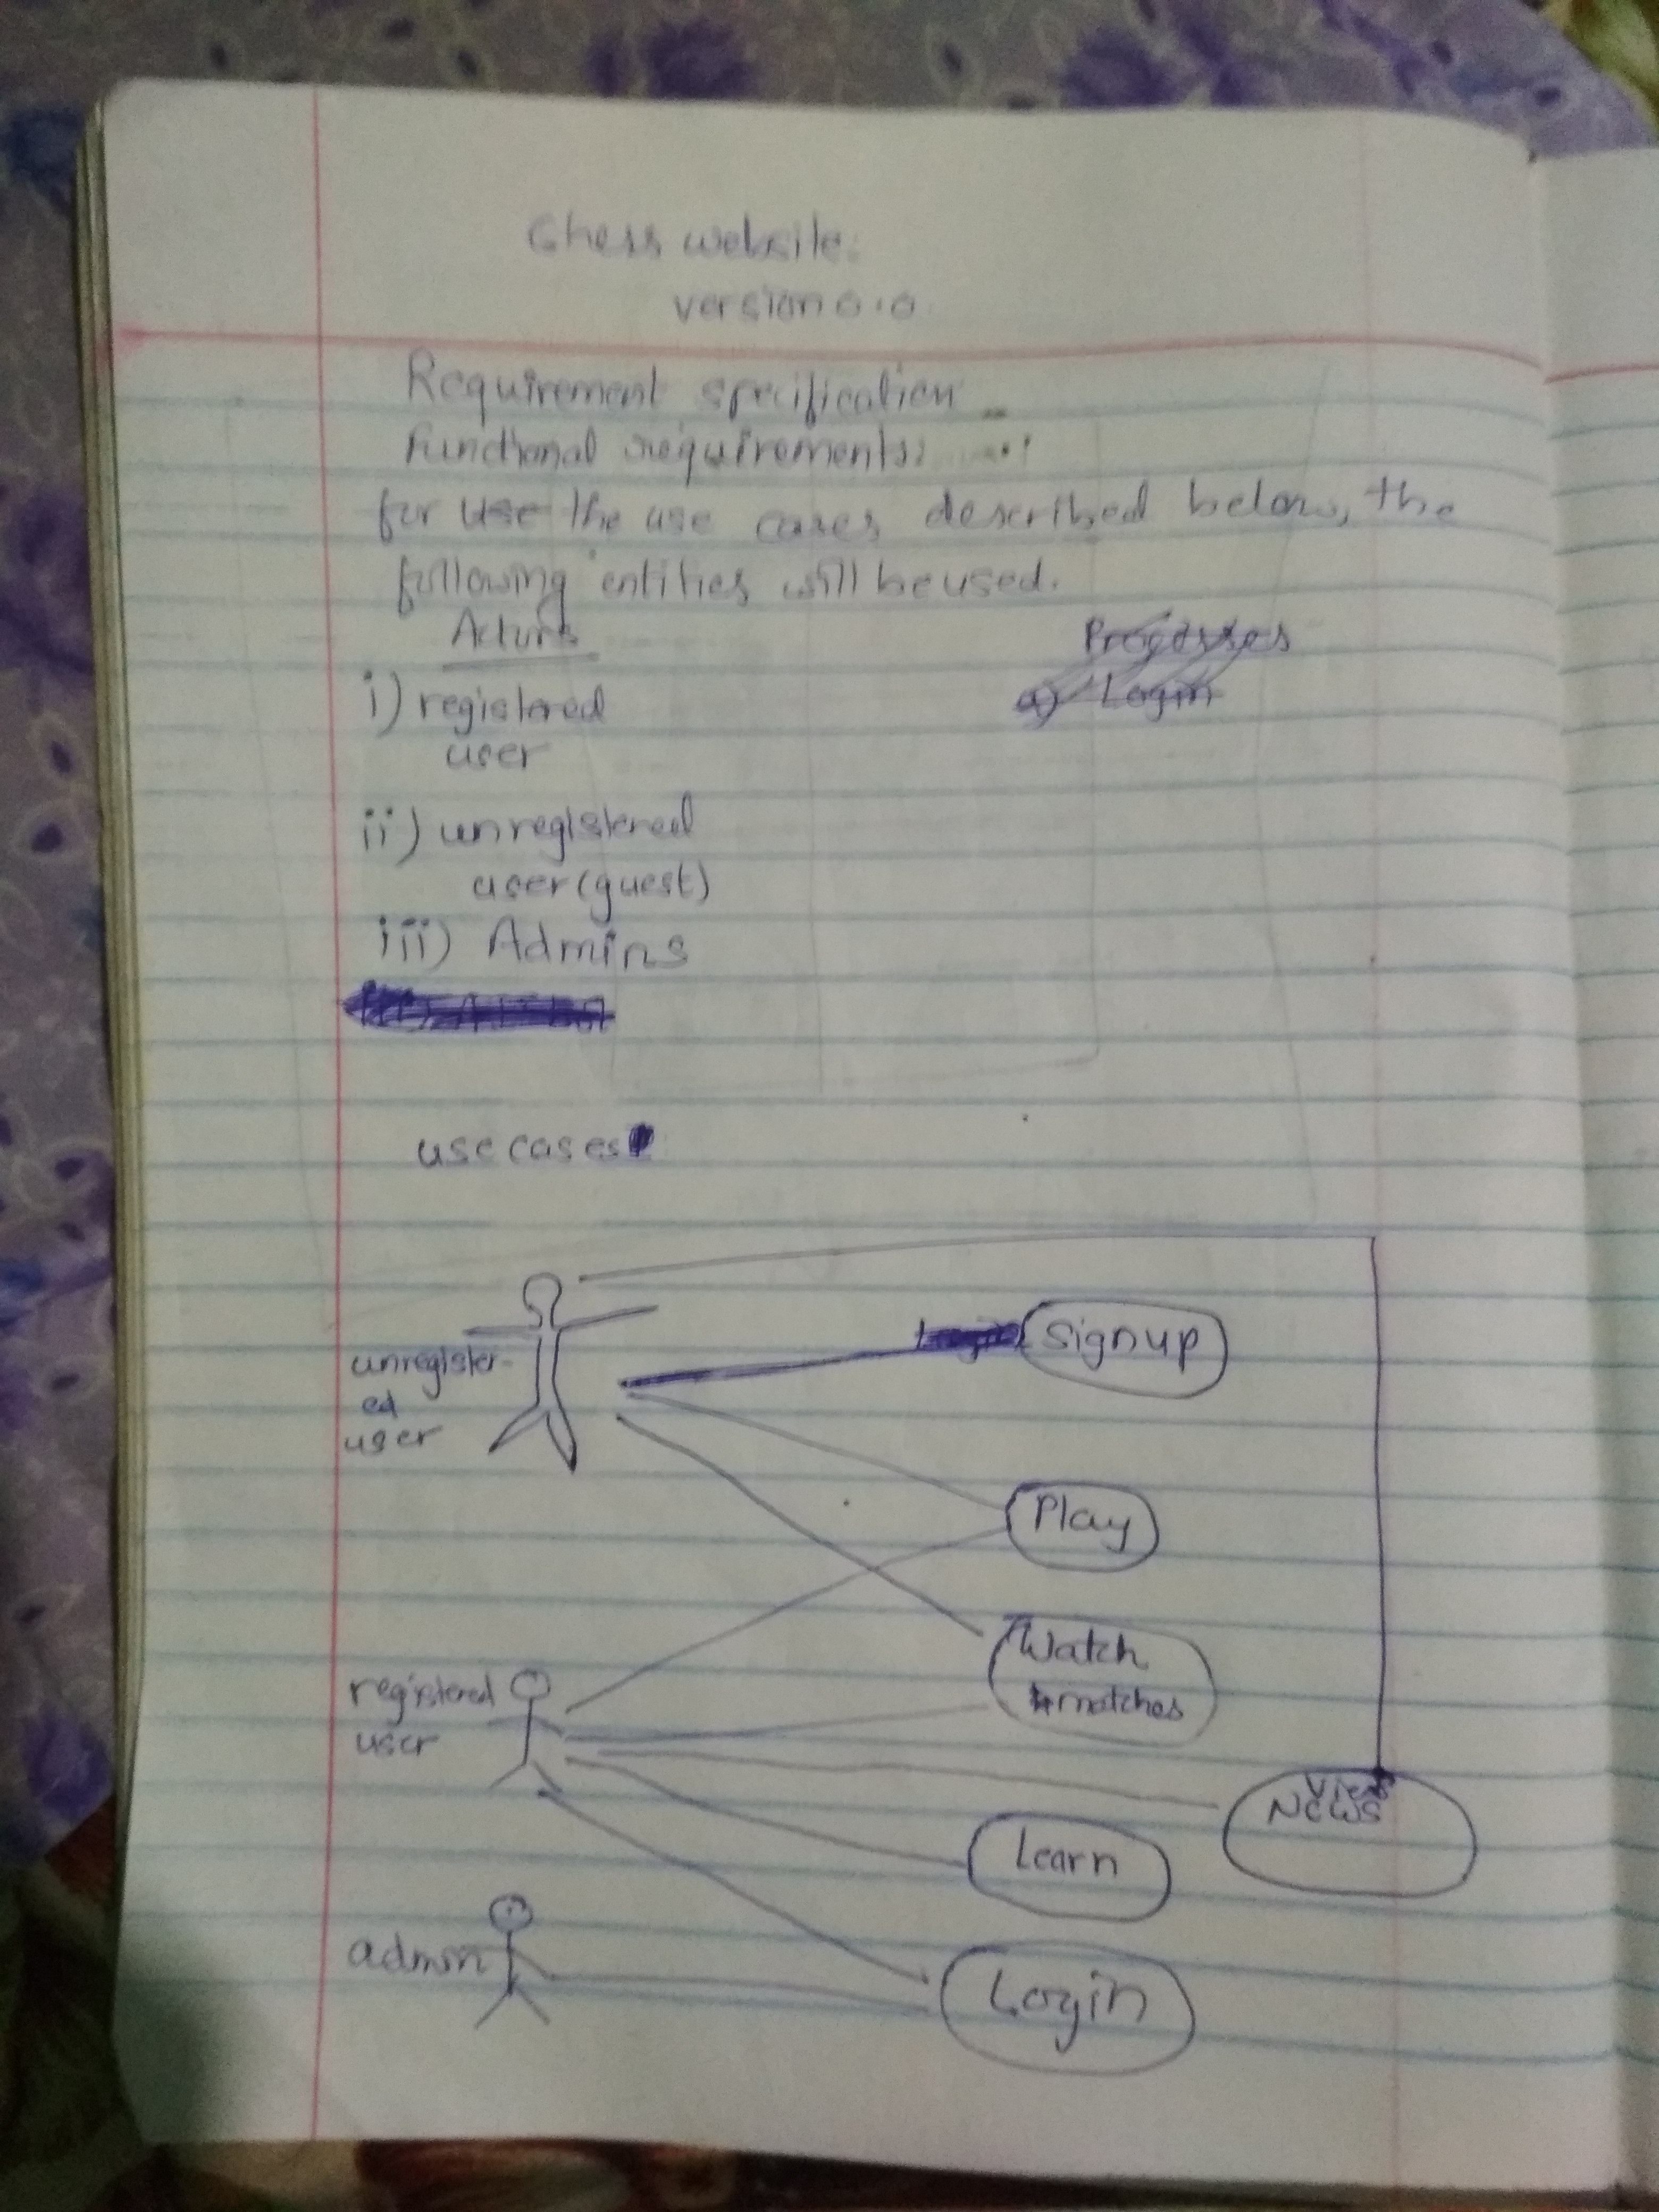 Chess website.
version 0.0.
Requirement specification
Functional requirements:
for use the use cases described below, the
following entities will be used.
Actors
Processes
i) registered
a) Login
user
ii) unregistered
user (guest)
iii) Admins
use cases
signup
unregister-
ed
user
Play
Watch
matches
registered
user
View
News
Learn
admin
Login